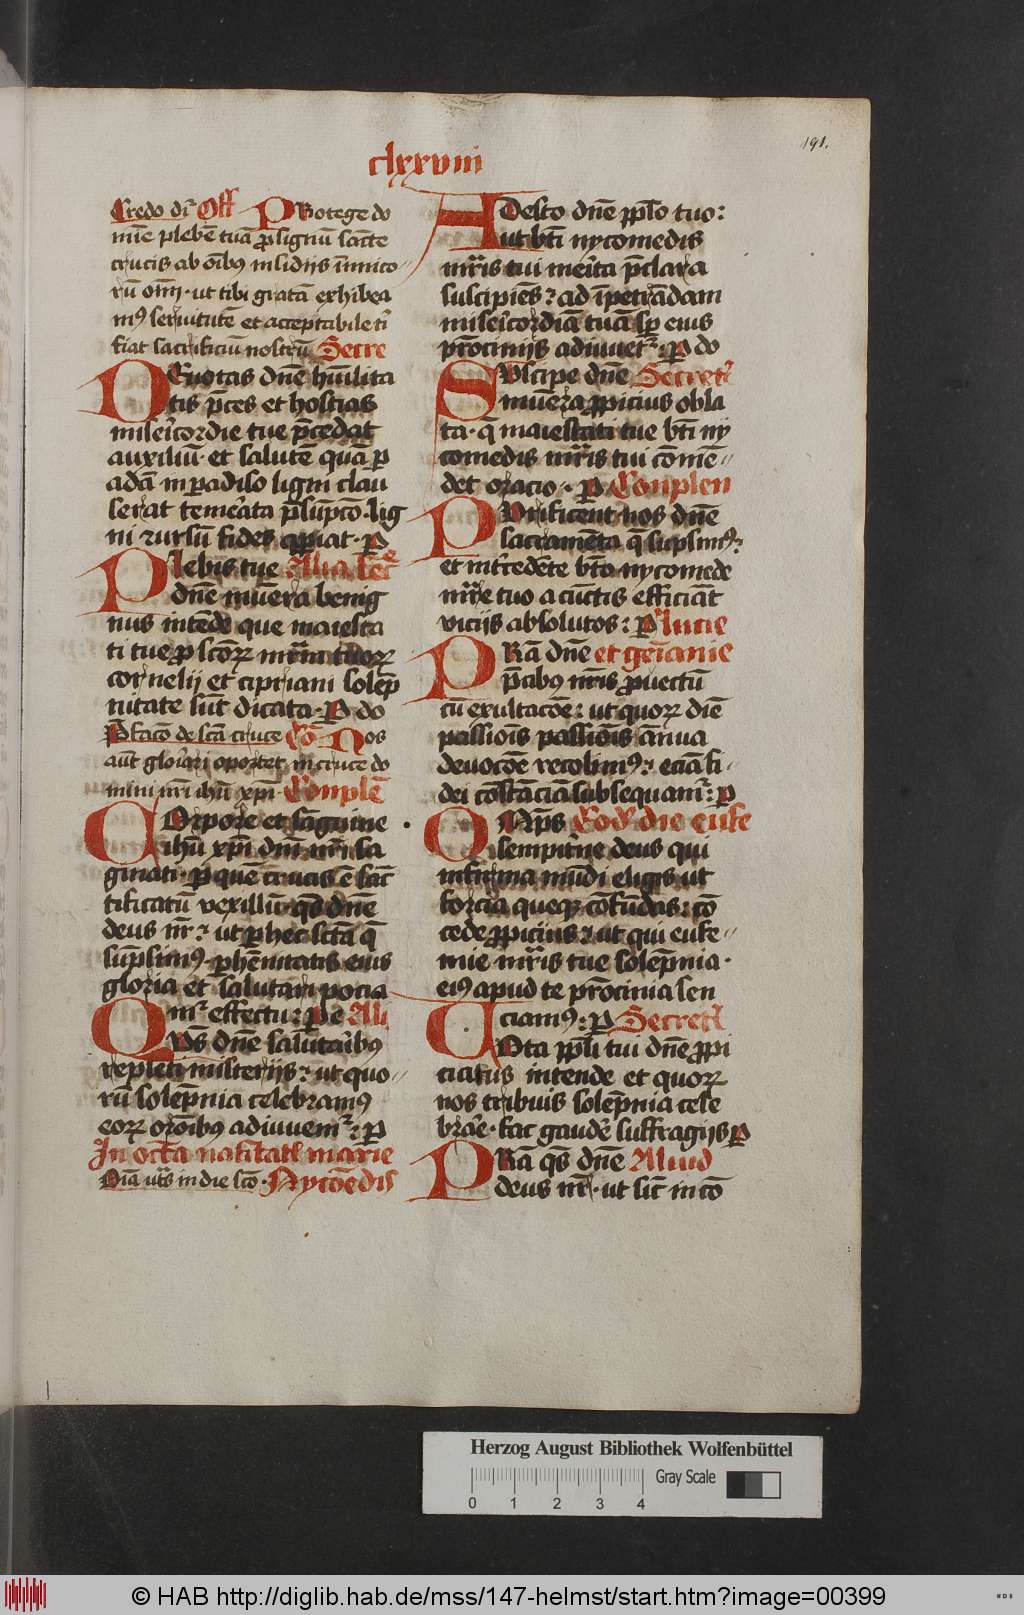 191.
clxxviii
Credo dr̄ Off Protege do
mīe plebē tuā ꝓ signū sācte
crucis ab oībꝰ insidijs īnmico
rū oīm · ut tibi gratā exhibea
mꝰ seruitutē et acceptabile ti
fiat sacrificiū nostrū Secre
DEuotas dn̄e hūilita
tis p̄ces et hostias
misericordie tue p̄cedat
auxiliū · et salutē quā ꝑ
adā in ꝑadiso ligni clau
serat temerata p̄sūpcō · lig
ni rursū fides apꝑiat · ꝑ
PLebis tue Alia secre
dn̄e mūera benig
nus intēde que maiesta
ti tue ꝓ scōꝝ mr̄m tuoꝝ
cornelij et cipriani solēp
nitate sūt dicata · P do
P̄facō de scā cruce Cō Nos
aūt gloriari oportet in cruce do
mini nr̄i ihū xpī Conplē
COrpore et sāguine
ihū xpī dnī nr̄i sa
ginati · ꝑ quē crucis ē sāc
tificatū vexillū · qs̄ dn̄e
deus nr̄ : ut ꝑ hec sctā q̄
sūpsimꝰ · ꝑhēnitatis eius
gloria et salutari pocia
mr̄ effectu : Pe Ali
QVs̄ dn̄e salutaribꝰ
repleti misterijs : ut quo
rū solēpnia celebramꝰ
eoꝝ orōibꝰ adiuuemr̄ : ꝑ
In octā natiuitatē marie
Oīa ut sͣ in die scō · Nycōedis
ADesto dn̄e ppl̄o tuo :
ut bt̄i nycomedis
mr̄is tui merita p̄clara
suscipiēs : ad īpetrādam
misericordiā tuā sꝑ eius
pr̄ociniis adiuuetr̄ : P do
SVscipe dn̄e Secret̄
mūera ꝓpicius obla
ta · q̄ maiestati tue bt̄i ny
comedis mr̄is tui cōmē
det oracio · P Conplen
PVrificent nos dn̄e
sacramēta q̄ sūpsimꝰ :
et int̄cedēte bt̄o nycomede
mr̄e tuo a cūctis efficiāt
viciis absolutos : P Lucie
PRā dn̄e et geīanie
p̄cibꝰ nr̄is ꝓuectū
cū exultacōe : ut quoꝝ diē
passiōis passiōis ānua
deuocōe recolimꝰ : eciā fi
dei cōstāciā subsequamr̄ : ꝑ
OMp̄s Eodē die eufe
sempitn̄e deus qui
infirma mūdi eligis ut
forcia queqꝫ cōfūdas : cō
cede ꝓpicius : ut qui eufe
mie mr̄is tue solēpnia ·
eiꝰ apud te pr̄ocinia sen
ciamꝰ : P Secret̄
VOta ppl̄i tui dn̄e ꝓpi
ciatus intende et quoꝝ
nos tribuis solēpnia cele
brāe · fac gaudē suffragijs P
PRā qs̄ dn̄e Aliud
deus nr̄ · ut sic̄ in cō
Herzog August Bibliothek Wolfenbüttel
Gray Scale
0 1 2 3 4
© HAB http://diglib.hab.de/mss/147-helmst/start.htm?image=00399